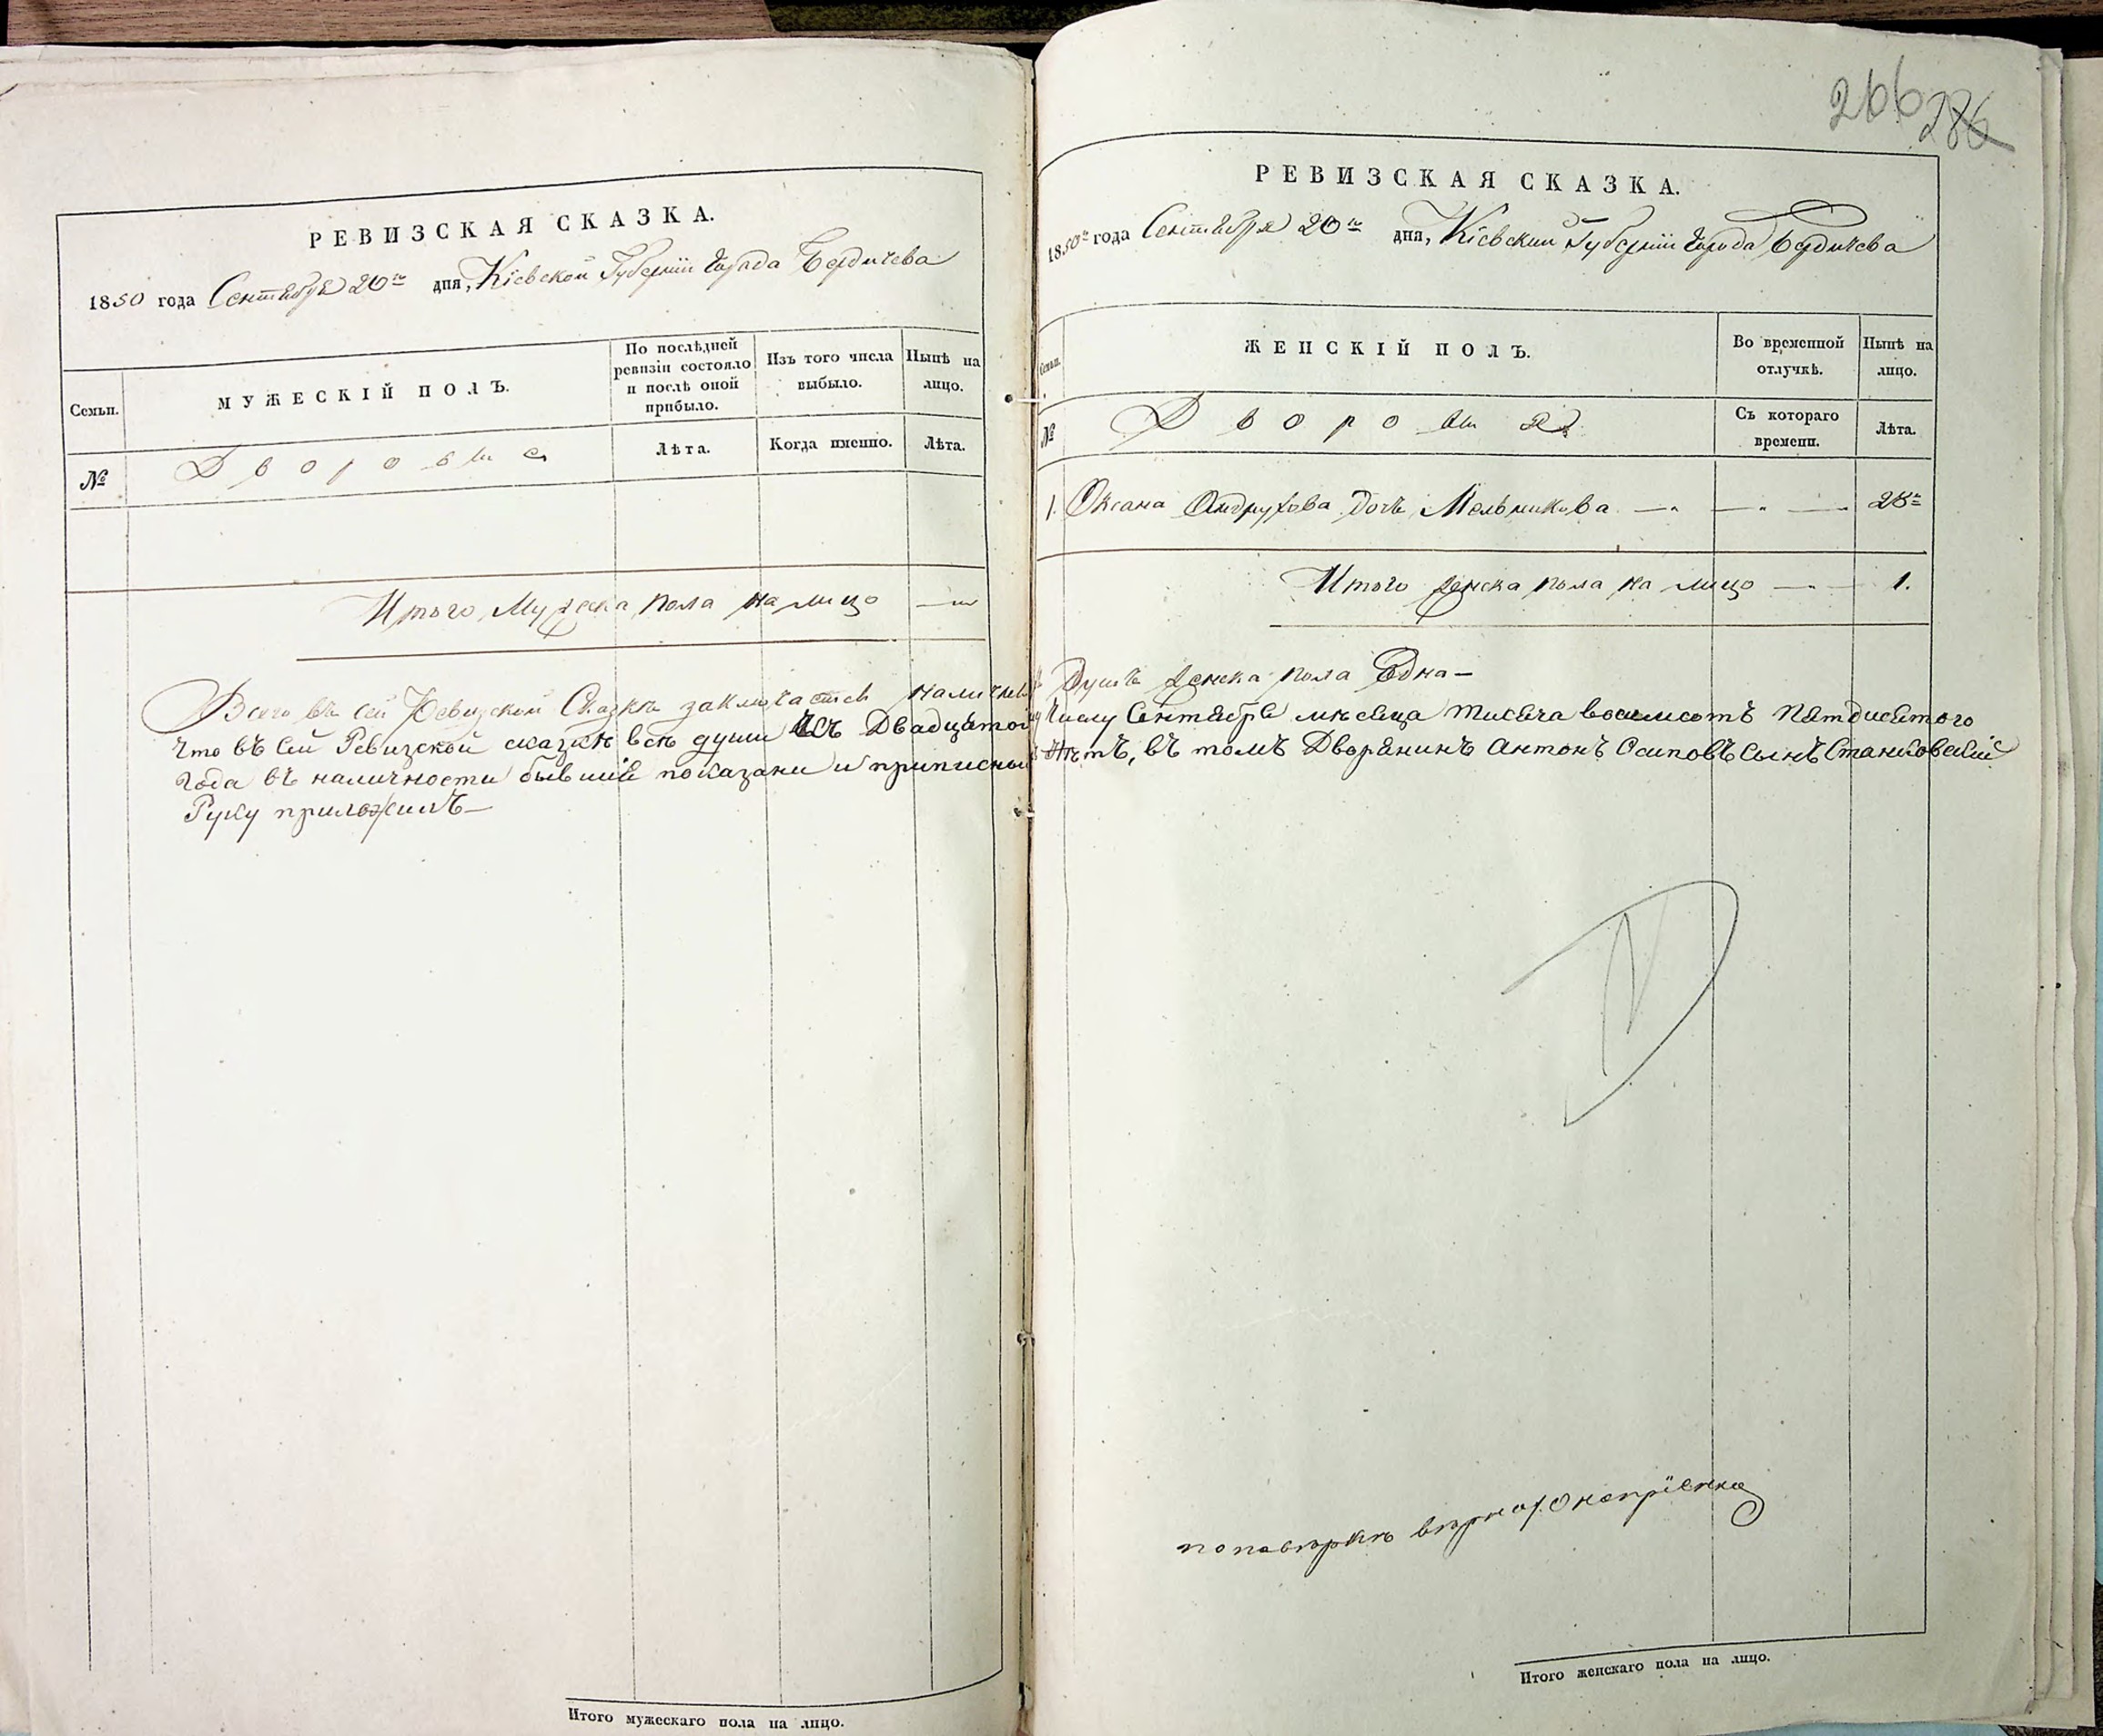 РЕВИЗСКАЯ СКАЗКА.
1850 года Сентября 20го дня, Кіевской Губерніи Города Бердичева
Семьи.
МУЖЕСКІЙ ПОЛЪ.
По послѣдней ревизіи состояло и послѣ оной прибыло.
Изъ того числа выбыло.
Нынѣ на лицо.
№
Дворовые
Лѣта.
Когда именно.
Лѣта.
Итого Мужеска Пола на лицо —„—
Всего въ сей Ревизской Сказкѣ заключается Наличных
Что въ сей Ревизской сказкѣ всѣ души къ Двадцатому
года въ наличности бывшіе показани и приписных
Руку приложилъ—
Итого мужескаго пола на лицо.
266 286
РЕВИЗСКАЯ СКАЗКА.
1850го года Сентября 20го дня, Кіевской Губерніи Города Бердичева
Семьи.
ЖЕНСКІЙ ПОЛЪ.
Во временной отлучкѣ.
Нынѣ на лицо.
№
Дворовыя
Съ котораго времени.
Лѣта.
1. Оксана Андрухова Дочь Мельникова —„— —„— 28
Итого Женска Пола на лицо —„— 1.
Душъ Женска Пола Одна—
Числу Сентября мѣсяца тисяча восемсотъ Пятдисятого
нѣтъ, въ томъ Дворянинъ Антонъ Осиповъ Сынъ Станковскій
по повѣркѣ вѣрно
Итого женскаго пола на лицо.